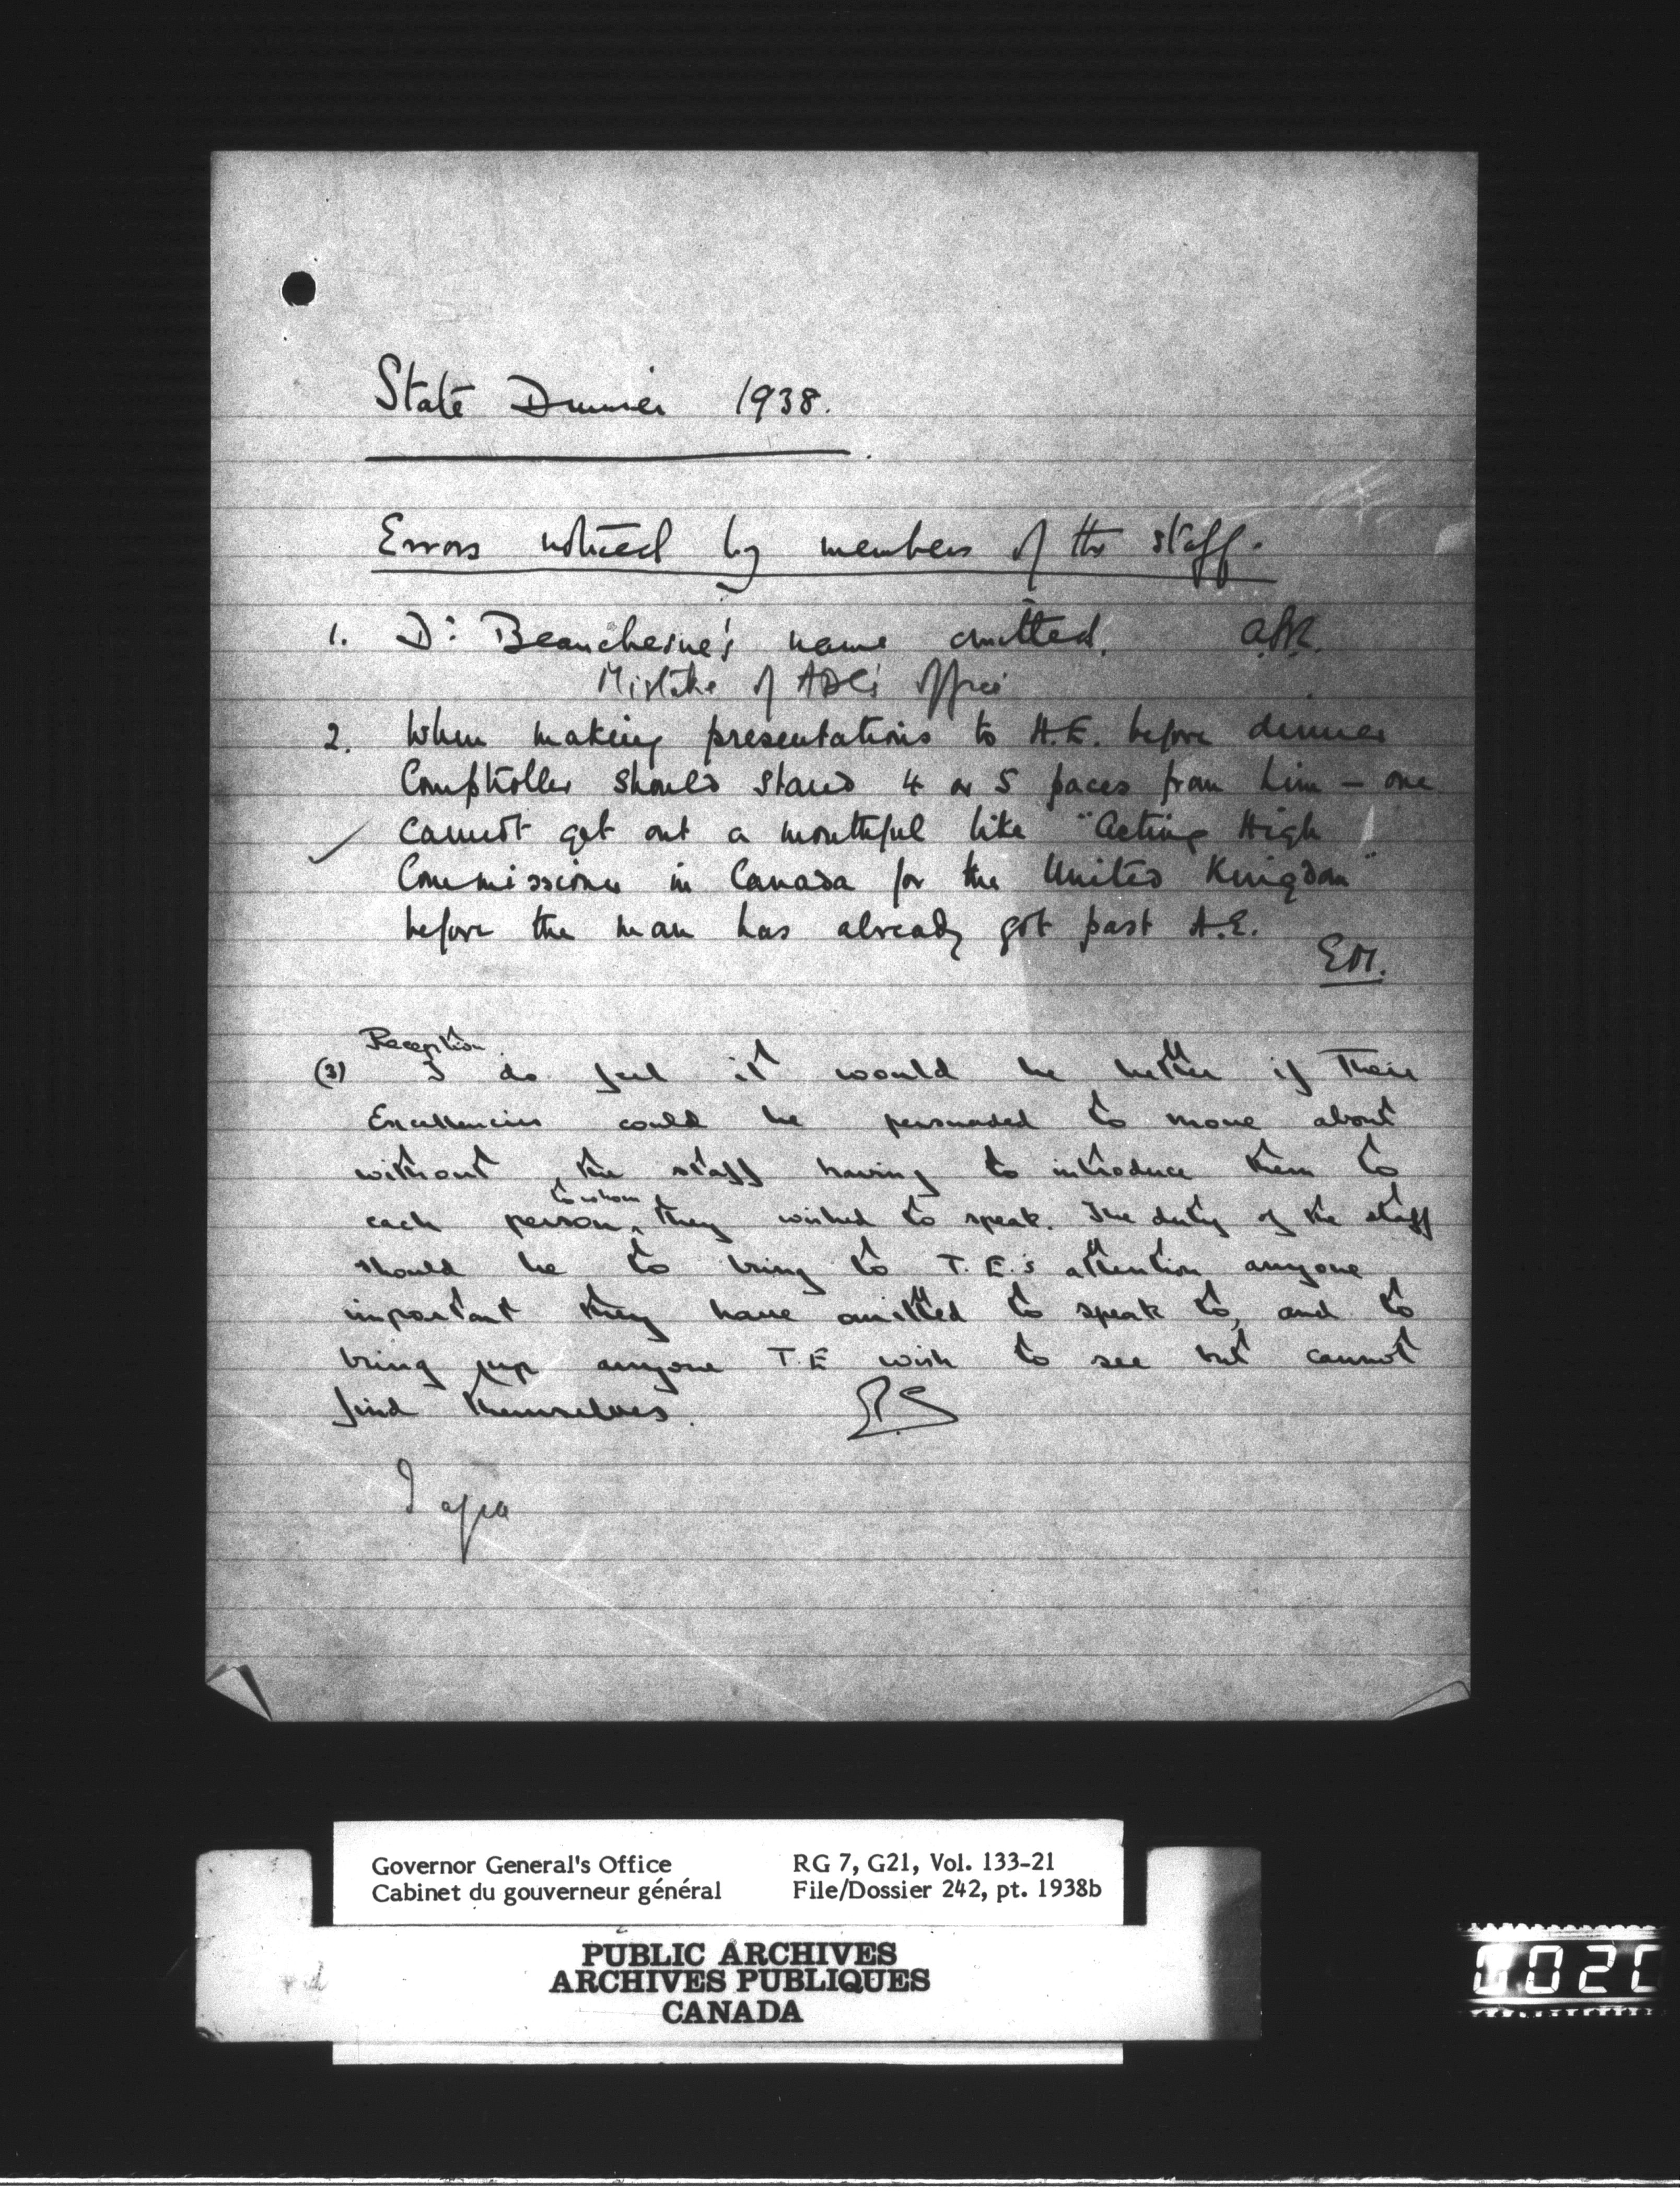 State Dinner 1938.
Errors noticed by members of the staff.
1. Dr Beauchesne's name omitted.
Mistake of ADC's office
2. When making presentations to H.E. before dinner
Comptroller should stand 4 or 5 paces from him – one
cannot get out a mouthful like "Acting High
Commissioner in Canada for the United Kingdom"
before the man has already got past H.E.
EM.
Reception
(3) I do feel it would be better if Their
Excellencies could be persuaded to move about
without the staff having to introduce them to
to whom
each person they wished to speak. The duty of the staff
should be to bring to T.E.'s attention anyone
important they have omitted to speak to, and to
bring up anyone T.E wish to see but cannot
find themselves.
I agree
Governor General's Office
Cabinet du gouverneur général
RG 7, G21, Vol. 133-21
File/Dossier 242, pt. 1938b
PUBLIC ARCHIVES
ARCHIVES PUBLIQUES
CANADA